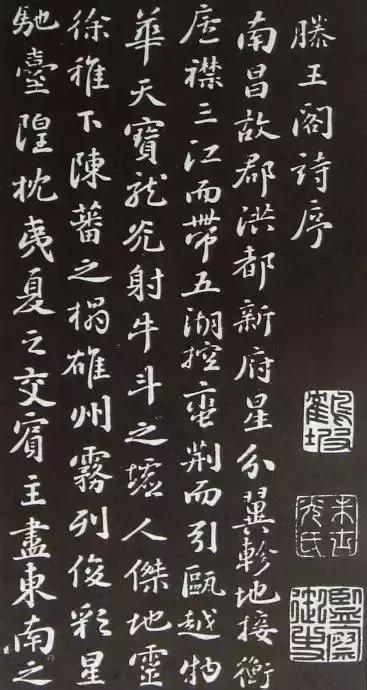 滕王閣詩序
南昌故郡洪都新府星分翼軫地接衡
廬襟三江而帶五湖控蠻荆而引甌越物
華天寶龍光射牛斗之墟人傑地靈
徐稚下陳蕃之榻雄州霧列俊彩星
馳臺隍枕夷夏之交賓主盡東南之